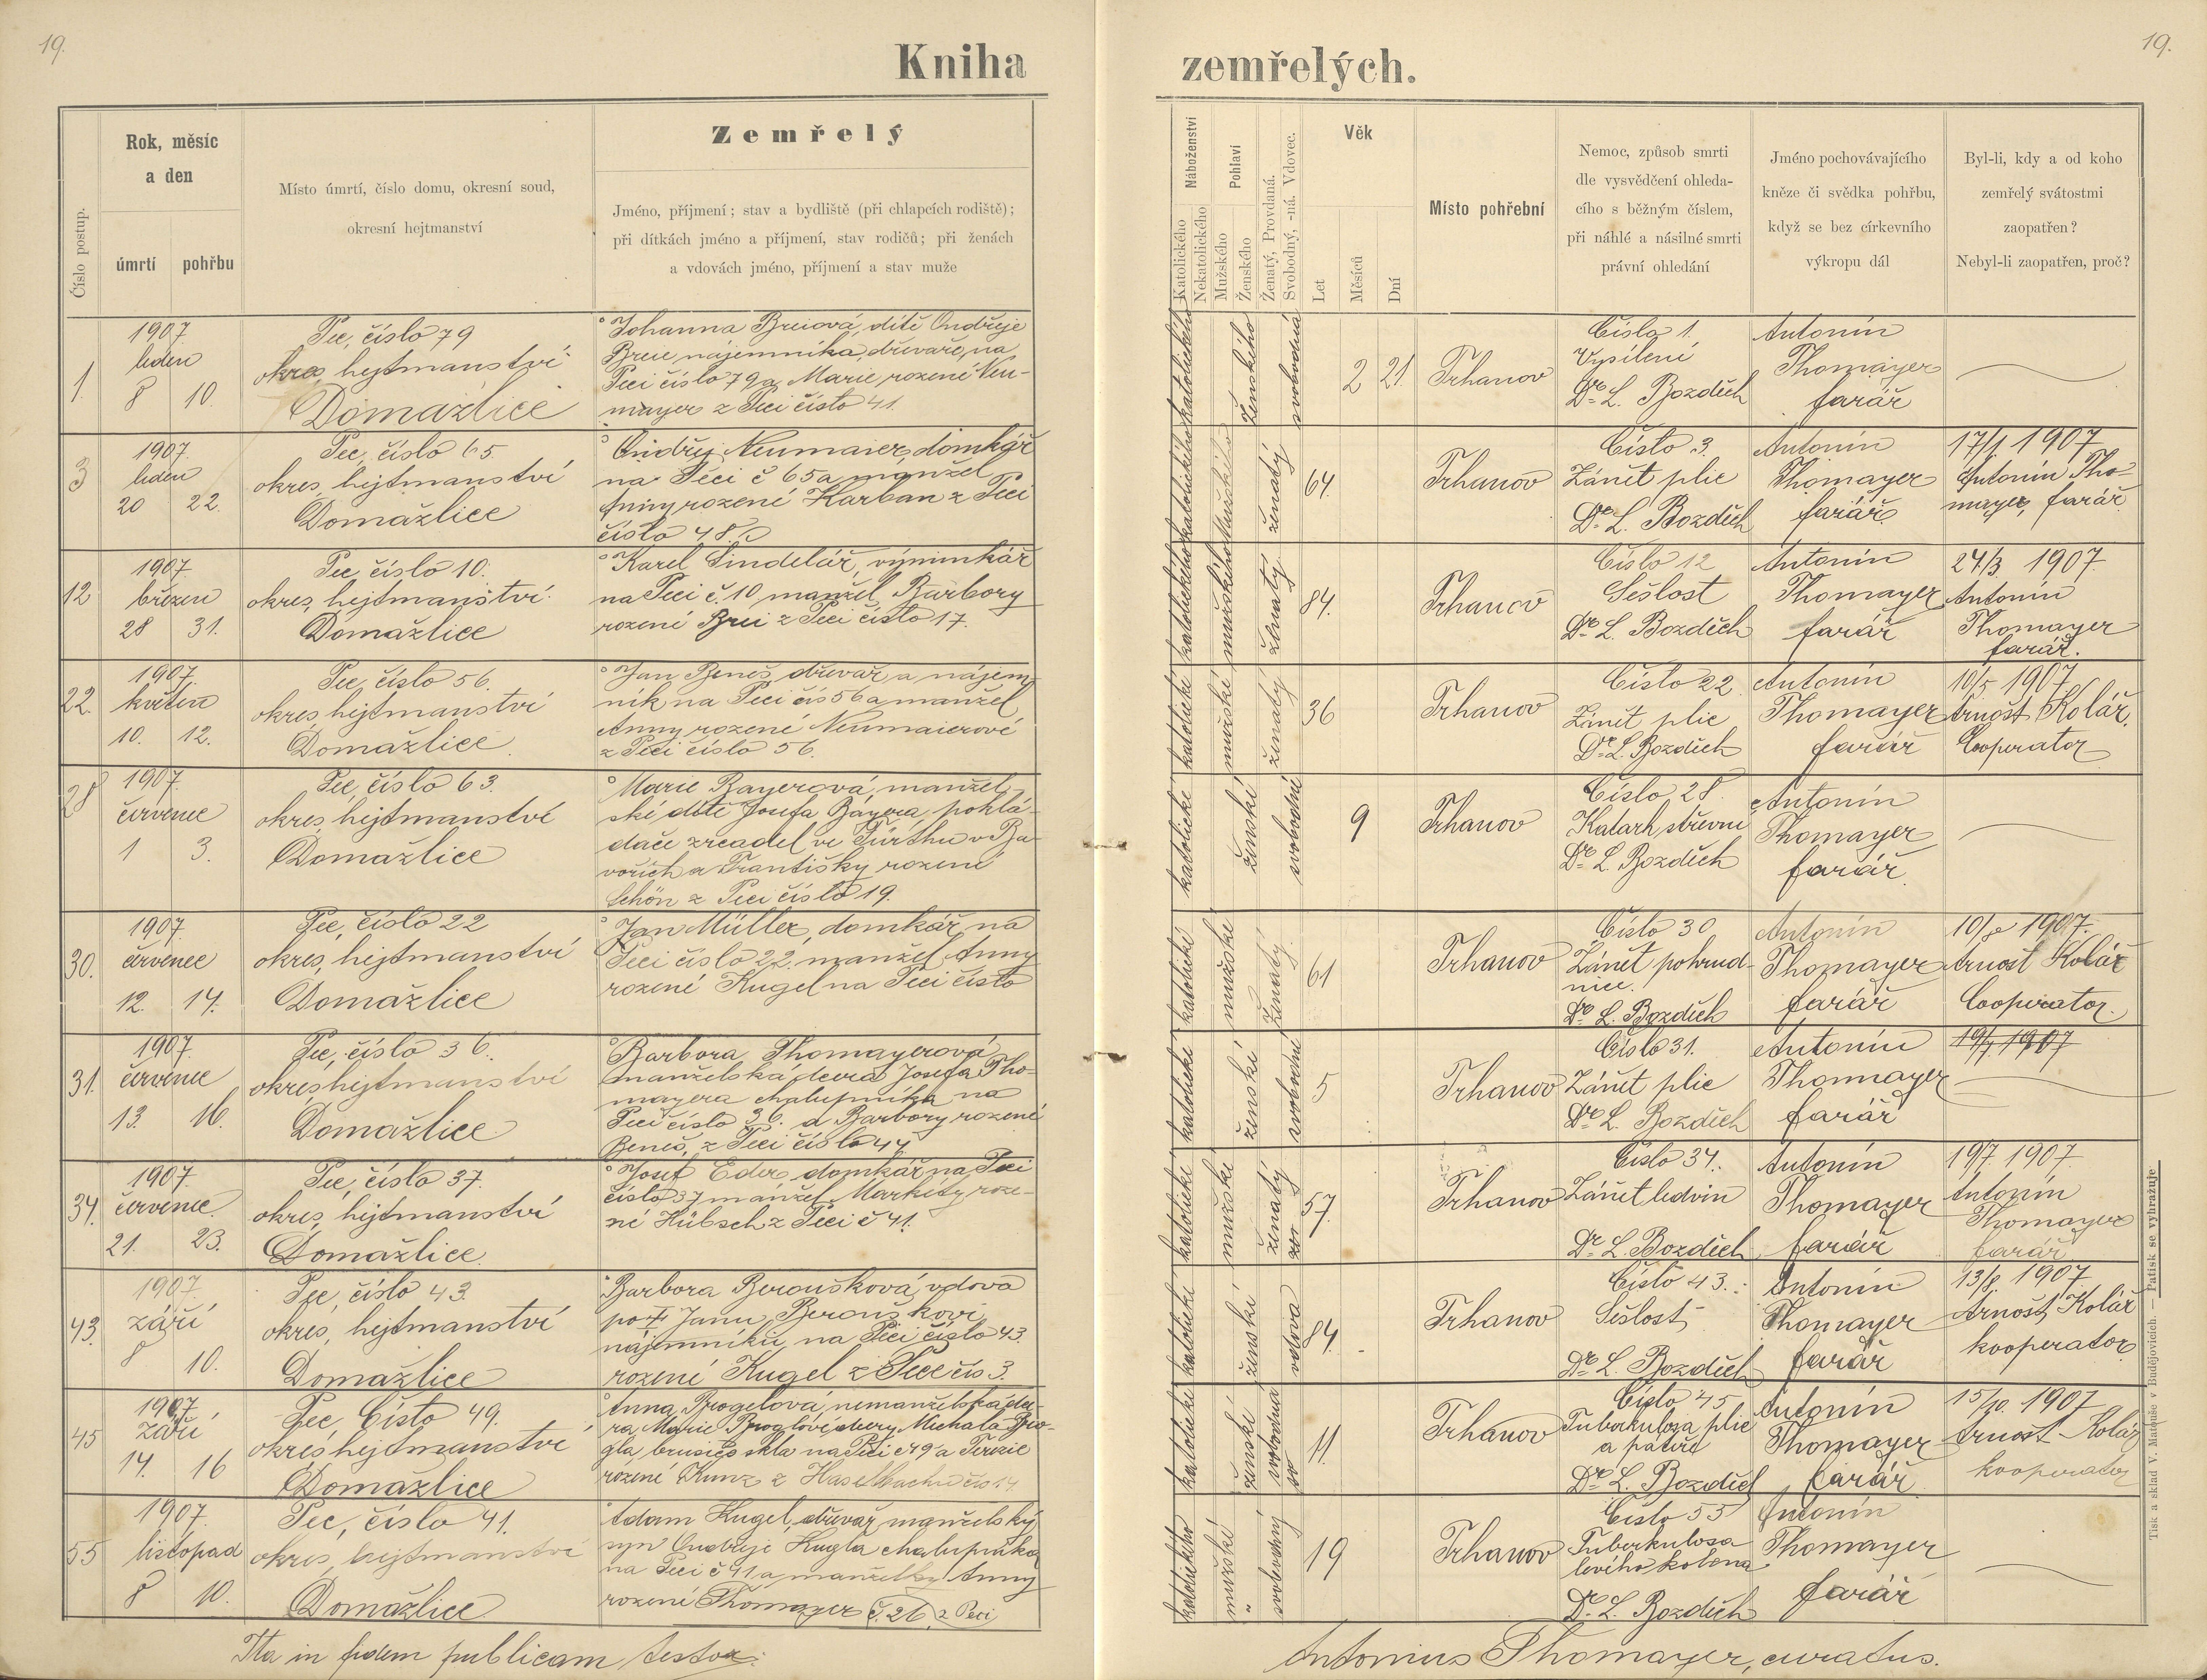 19.
Kniha
Číslo postup.
Rok, měsíc
a den
úmrtí
pohřbu
Místo úmrtí, číslo domu, okresní soud,
okresní hejtmanství
Zemřelý
Jméno, příjmení; stav a bydliště (při chlapcích rodiště);
při dítkách jméno a příjmení, stav rodičů; při ženách
a vdovách jméno, příjmení a stav muže
1.
1907.
leden
8 10.
Pec, číslo 79
okres, hejtmanství
Domažlice
Johanna Breiová, dítě Ondřeje
Breie, nájemníka, dřevaře, na
Peci číslo 79 a Marie rozené Neu-
mayer z Peci číslo 41.
3
1907.
leden
20 22.
Pec, číslo 65.
okres, hejtmanství
Domažlice
Ondřej Neumaier, domkář
na Peci č 65 a manžel
Anny rozené Karban z Peci
číslo 48.
12
1907.
březen
28 31.
Pec, číslo 10.
okres, hejtmanství.
Domažlice
Karel Šindelář, výminkář
na Peci č. 10, manžel Barbory
rozené Brei z Peci číslo 17.
22.
1907.
květen
10. 12.
Pec, číslo 56.
okres, hejtmanství
Domažlice.
Jan Beneš, dřevař a nájem-
ník na Peci čís 56 a manžel
Anny rozené Neumaierové
z Peci číslo 56.
28
1907.
červenec
1 3.
Pec, číslo 63.
okres, hejtmanství
Domažlice
Marie Bayerová, manžel-
ské dítě Josefa Bayera, pohlá-
dače zrcadel ve Fürthu v Ba-
vořích a Františky rozené
Schön z Peci číslo 19.
30.
1907.
červenec
12. 14.
Pec, číslo 22
okres, hejtmanství
Domažlice
Jan Müller, domkář na
Peci číslo 22, manžel Anny
rozené Kugel na Peci číslo
31.
1907.
červenec
13. 16.
Pec, číslo 36.
okres hejtmanství
Domažlice
Barbora Thomayerová
manželská dcera Josefa Tho-
mayera chalupníka na
Peci číslo 36. a Barbory rozené
Beneš, z Peci číslo 44
34.
1907.
červenec.
21. 23.
Pec, číslo 37.
okres, hejtmanství
Domažlice.
Josef Eder, domkář na Peci
číslo 37 manžel Markéty roze-
né Hübsch z Peci č 41.
43.
1907.
září
8 10.
Pec, číslo 43.
okres, hejtmanství
Domažlice
Barbora Beroušková, vdova
po † Janu Berouškovi
nájemníku, na Peci číslo 43.
rozené Kugel z Pece čís 3.
45
1907
září
14. 16
Pec, Číslo 49.
okres hejtmanství
Domažlice
Anna Broglová, nemanželská dce-
ra Marie Broglové dcery Michala Bro-
gla, brusiče skla na Peci č 49 a Terezie
rozené Kunz z Haselbachu čís 14.
55
1907.
listopad
8 10.
Pec, číslo 41.
okres, hejtmanství
Domažlice
Adam Kugel, dřevař, manželský
syn Ondřeje Kugla chalupníka
na Peci č 41 a manželky Anny
rozené Thomayer č. 26, z Peci
Ita in fidem publicam testor:
19.
zemřelých.
Náboženství
Katolického
Nekatolického
Pohlaví
Mužského
Ženského
Ženatý, Provdaná.
Svobodný, -ná. Vdovec.
Věk
Let
Měsíců
Dní
Místo pohřební
Nemoc, způsob smrti
dle vysvědčení ohleda-
cího s běžným číslem,
při náhlé a násilné smrti
právní ohledání
Jméno pochovávajícího
kněze či svědka pohřbu,
když se bez církevního
výkropu dál
Byl-li, kdy a od koho
zemřelý svátostmi
zaopatřen?
Nebyl-li zaopatřen, proč?
katolického
ženského
svobodná
2 21.
Trhanov
Číslo 1.
Vysílení
Dr. L. Bozděch
Antonín
Thomayer
farář
katolického
mužského
ženatý
64.
Trhanov
Číslo 3.
Zánět plic
Dr. L. Bozděch
Antonín
Thomayer
farář
17/1 1907
Antonín Tho-
mayer, farář
katolického
mužského
ženatý.
84.
Trhanov
Číslo 12
Sešlost
Dr. L. Bozděch
Antonín
Thomayer
farář
24/3 1907.
Antonín
Thomayer
farář.
katolické
mužské
ženatý
36
Trhanov
Číslo 22.
Zánět plic
Dr. L. Bozděch
Antonín
Thomayer
farář
10/5 1907
Arnošt Kolář,
Cooperator
katolické
ženské
svobodné
9
Trhanov
Číslo 28.
Katarh střevní
Dr. L. Bozděch
Antonín
Thomayer
farář.
katolické
mužské
ženatý.
61
Trhanov
Číslo 30
Zánět pohrud-
nice.
Dr. L. Bozděch
Antonín
Thomayer
farář
1907.
Arnošt Kolář
Cooperator.
katolické
ženské
svobodné
5
Trhanov
Číslo 31.
Zánět plic
Dr. L. Bozděch
Antonín
Thomayer
farář
19/7 1907
katolické
mužské
ženatý
57.
Trhanov
Číslo 34.
Zánět ledvin
Dr. L. Bozděch
Antonín
Thomayer
farář
19/7. 1907.
Antonín
Thomayer
farář
katolické
ženské
vdova
84.
Trhanov
Číslo 43.
Sešlost
Dr. L. Bozděch
Antonín
Thomayer
farář
13/8 1907
Arnošt Kolář
kooperator
katolické
ženské
svobodna
11.
Trhanov
Číslo 45
Tuberkulosa plic
a páteře
Dr. L. Bozděch
Antonín
Thomayer
farář
15/10. 1907
Arnošt Kolář
kooperator
katolického
mužské
svobodný
19
Trhanov
Číslo 55
Tuberkulosa
levého kolena
Dr. L. Bozděch
Antonín
Thomayer
farář
Antonius Thomayer, curatus.
Tisk a sklad V. Matouše v Budějovicích. — Patisk se vyhražuje